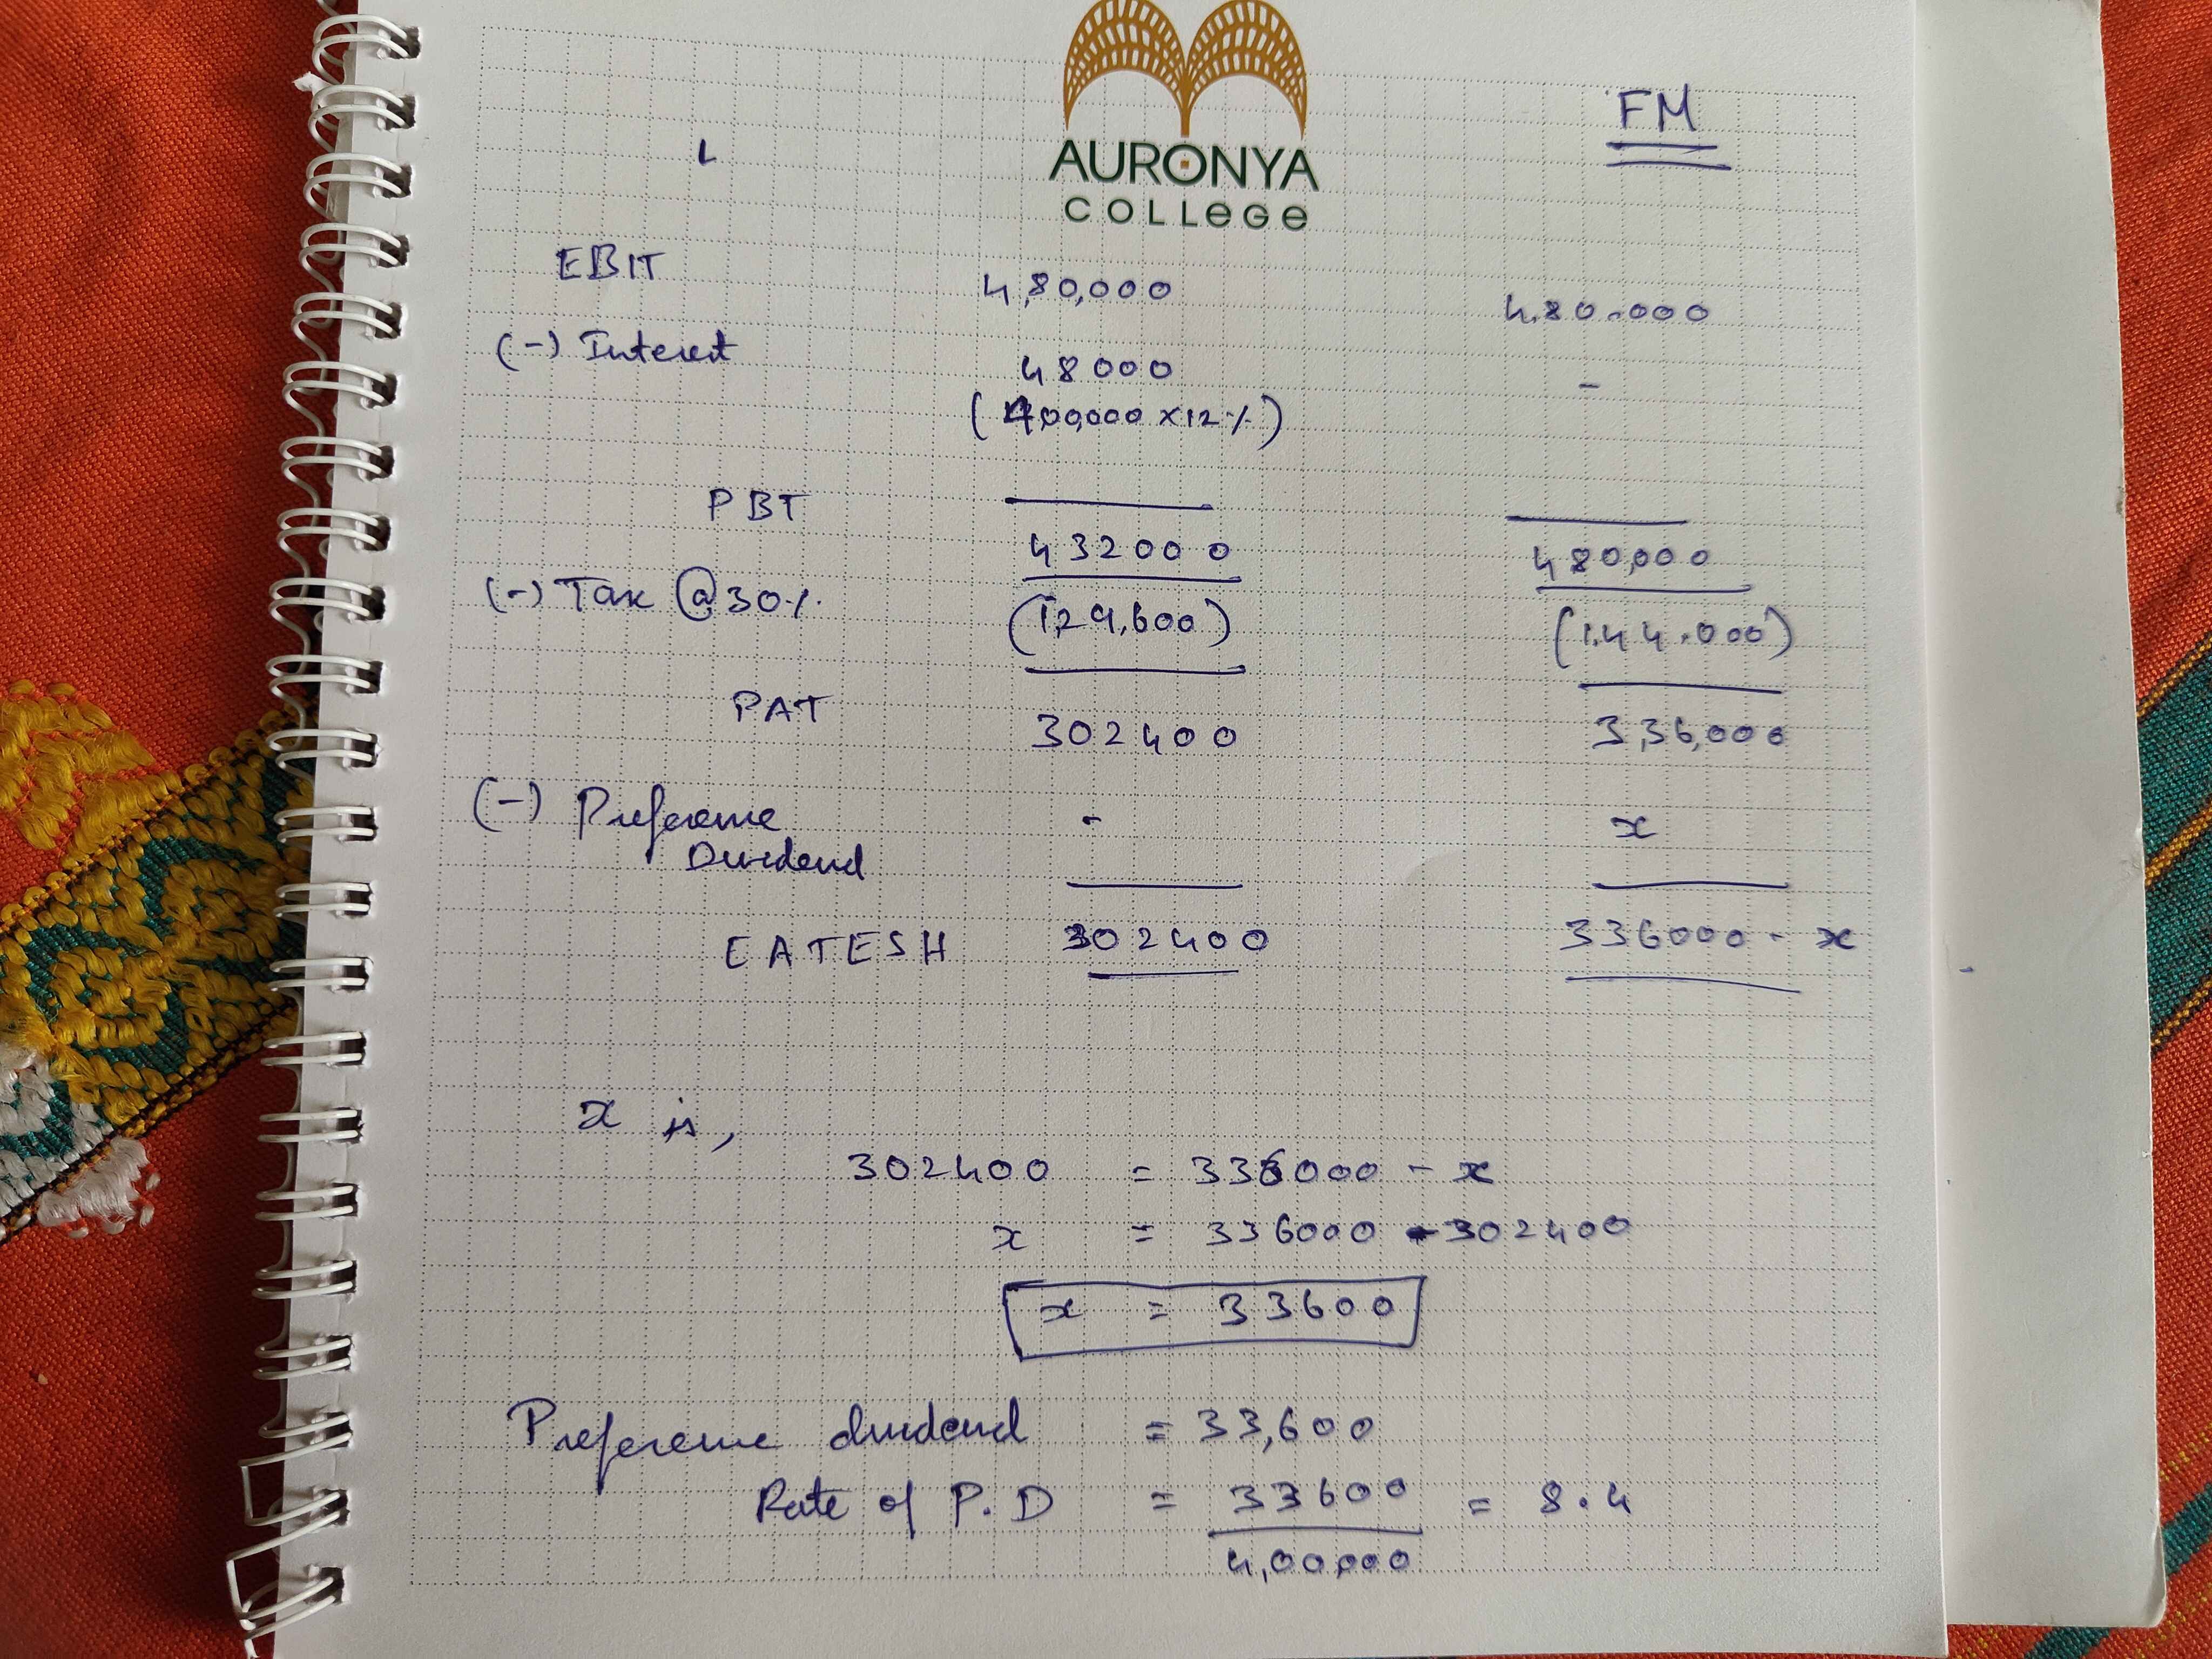 AURONYA
COLLeGe
FM
L
EBIT 4,80,000 4.80.000
(-) Interest 48000 -
(4,00,000 x 12%)
PBT 432000 480,000
(-) Tax @ 30% (1,29,600) (1.44.000)
PAT 302400 3,36,000
(-) Preference - x
Dividend
EATESH 302400 336000 - x
x is,
302400 = 336000 - x
x = 336000 - 302400
x = 33600
Preference dividend = 33,600
Rate of P.D = 33600 = 8.4
4,00,000